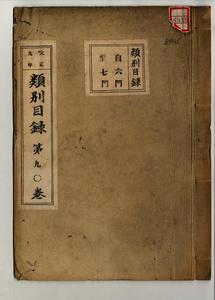 類別目録
自六門
至七門
大正九年
類別目録 第九〇巻